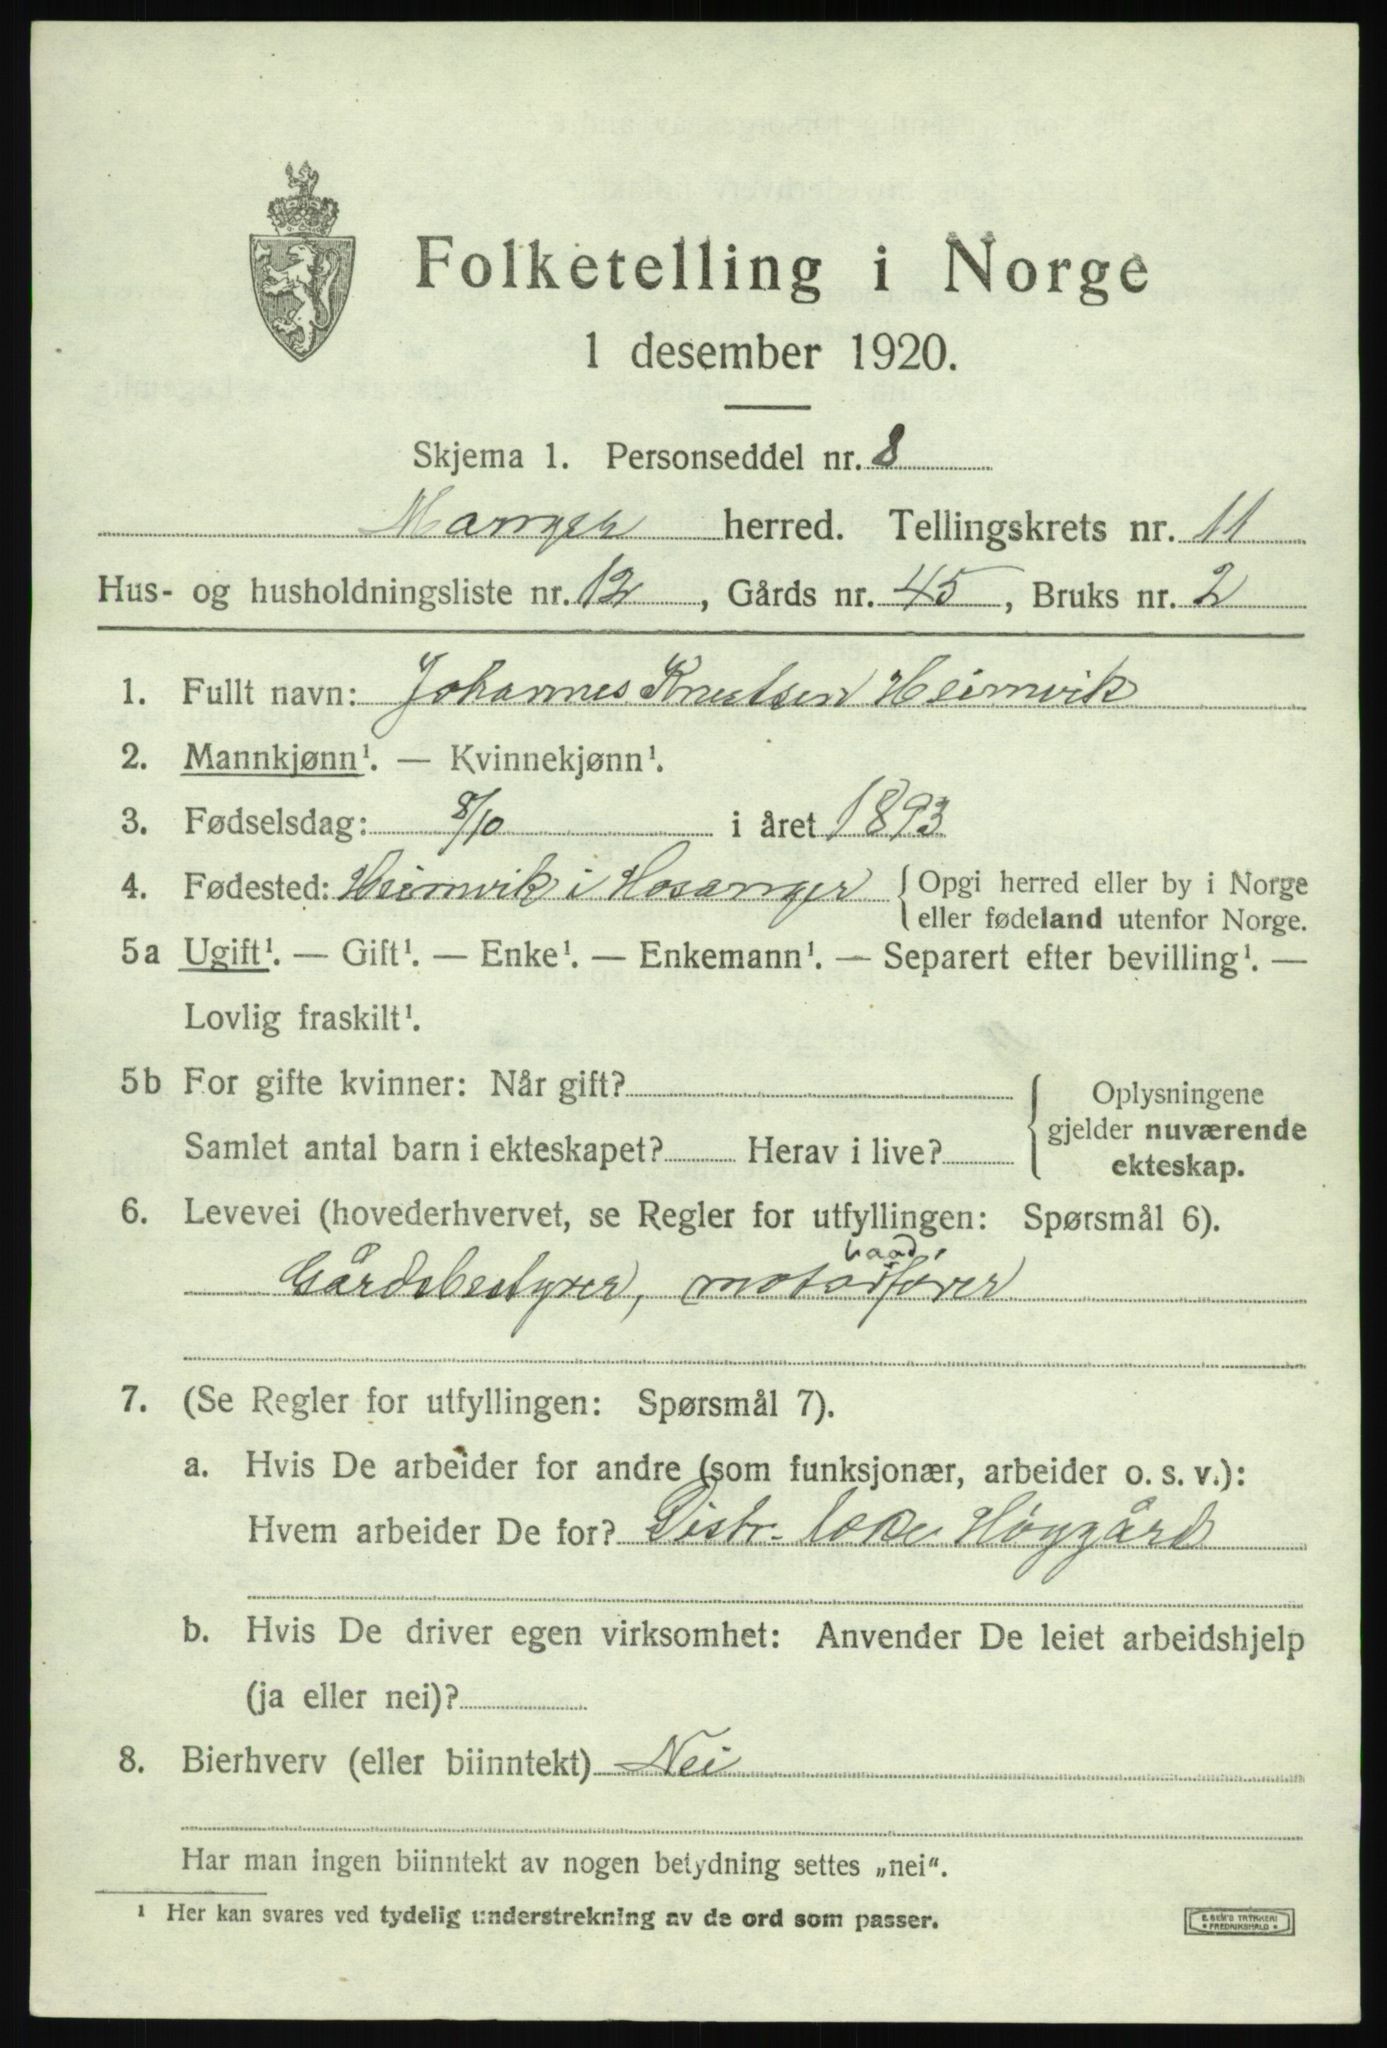 Folketelling i Norge
1 desember 1920.
Skjema 1. Personseddel nr. 8
Manger herred. Tellingskrets nr. 11
Hus- og husholdningsliste nr. 12, Gårds nr. 45, Bruks nr. 2
1. Fullt navn: Johannes Knutsen Heimvik
2. Mannkjønn¹. — Kvinnekjønn¹.
3. Fødselsdag: 8/10 i året 1893
4. Fødested: Heimvik i Hosanger { Opgi herred eller by i Norge
eller fødeland utenfor Norge.
5a Ugift¹. — Gift¹. — Enke¹. — Enkemann¹. — Separert efter bevilling¹. —
Lovlig fraskilt¹.
5b For gifte kvinner: Når gift?
Samlet antal barn i ekteskapet? Herav i live?
Oplysningene
gjelder nuværende
ekteskap.
6. Levevei (hovederhvervet, se Regler for utfyllingen: Spørsmål 6).
baad
Gårdsbestyrer, motorfører
7. (Se Regler for utfyllingen: Spørsmål 7).
a. Hvis De arbeider for andre (som funksjonær, arbeider o. s. v.):
Hvem arbeider De for? Distr. læke Høygård
b. Hvis De driver egen virksomhet: Anvender De leiet arbeidshjelp
(ja eller nei)?
8. Bierhverv (eller biinntekt) Nei
Har man ingen biinntekt av nogen betydning settes „nei“.
¹ Her kan svares ved tydelig understrekning av de ord som passer.
E. SEM'S TRYKKERI
FREDRIKSHALD